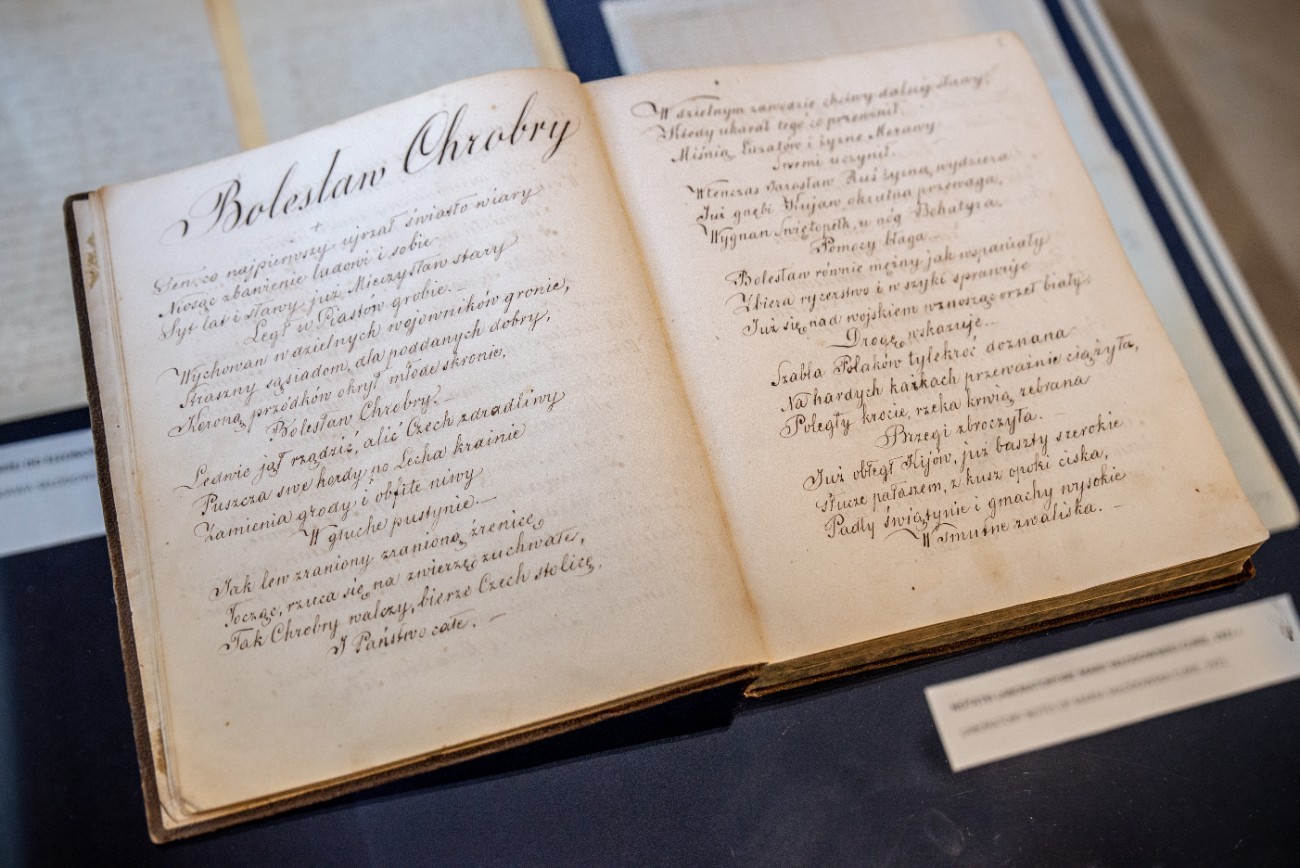 Bolesław Chrobry
+
Ten, co najpierwszy ujrzał światło wiary
Niosąc zbawienie ludowi i sobie
Syt lat i sławy już Mieczysław stary
Legł w Piastów grobie. –
Wychowan w dzielnych wojowników gronie,
Straszny sąsiadom, dla poddanych dobry,
Koroną przódków okrył młode skronie,
Bolesław Chrobry. –
Ledwie jął rządzić, alić Czech zdradliwy
Puszcza swe hordy po Lecha krainie
Zamienia grody i obfite niwy
W głuche pustynie. –
Jak lew zraniony zranioną źrenicę
Tocząc, rzuca się na zwierzę zuchwałe,
Tak Chrobry walczy, bierze Czech stolicę,
I Państwo całe. –
W dzielnym zawodzie chciwy dalszej sławy,
Kiedy ukarał tego co przewinił,
Miśnią, Luzatów i żyzne Morawy
Swemi uczynił.
Wtenczas Jarosław Ruś żyzną wydziera
Już gnębi Kujaw okrutna przewaga,
Wygnan Swiętopełk, u nóg Bohatyra,
Pomocy błaga. –
Bolesław równie mężny jak wspaniały
Zbiera rycerstwo i w szyki sprawuje
Już się nad wojskiem wznosząc orzeł biały,
Drogę wskazuje. –
Szabla Polaków tylekroć doznana
Na hardych karkach przeważnie ciążyła,
Poległy krocie, rzeka krwią zebrana
Brzegi zbroczyła. –
Już obległ Kijów, już baszty szerokie
Tłucze pałaszem, z kusz opoki ciska,
Padły świątynie i gmachy wysokie
W smutne zwaliska. –
LABORATORY NOTES OF MARIA SKŁODOWSKA-CURIE,